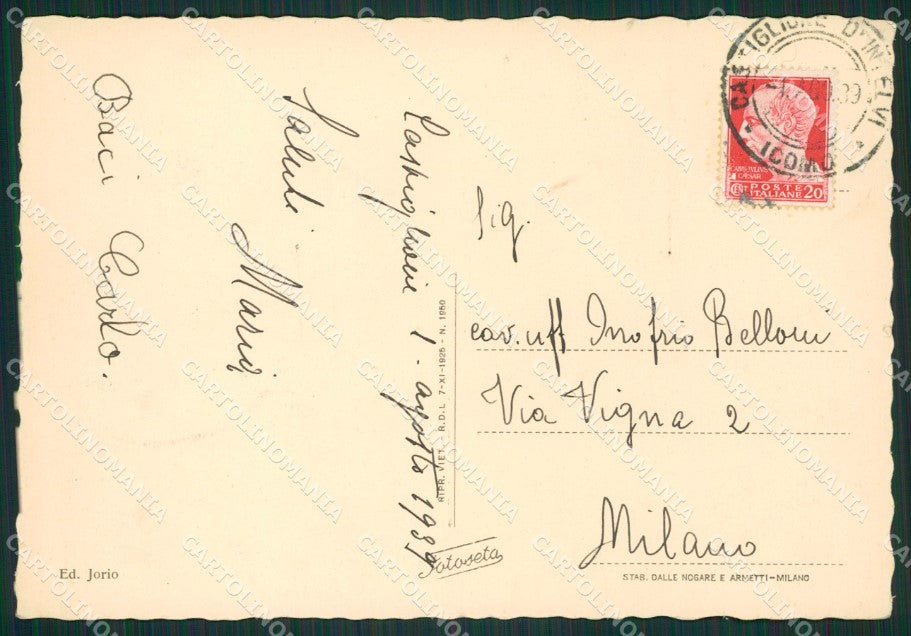 Castiglione 1. agosto 1939
Saluti Maria
Baci Carlo.
CASTIGLIONE D'INTELVI
(COMO)
POSTE
ITALIANE 20
Sig.
cav. uff Inofrio Belloni
Via Vigna 2
Milano
RIPR. VIET. R.D.L. 7-XI-1925 - N. 1950
Fotoseta
Ed. Jorio
STAB. DALLE NOGARE E ARMETTI-MILANO
CARTOLINOMANIA